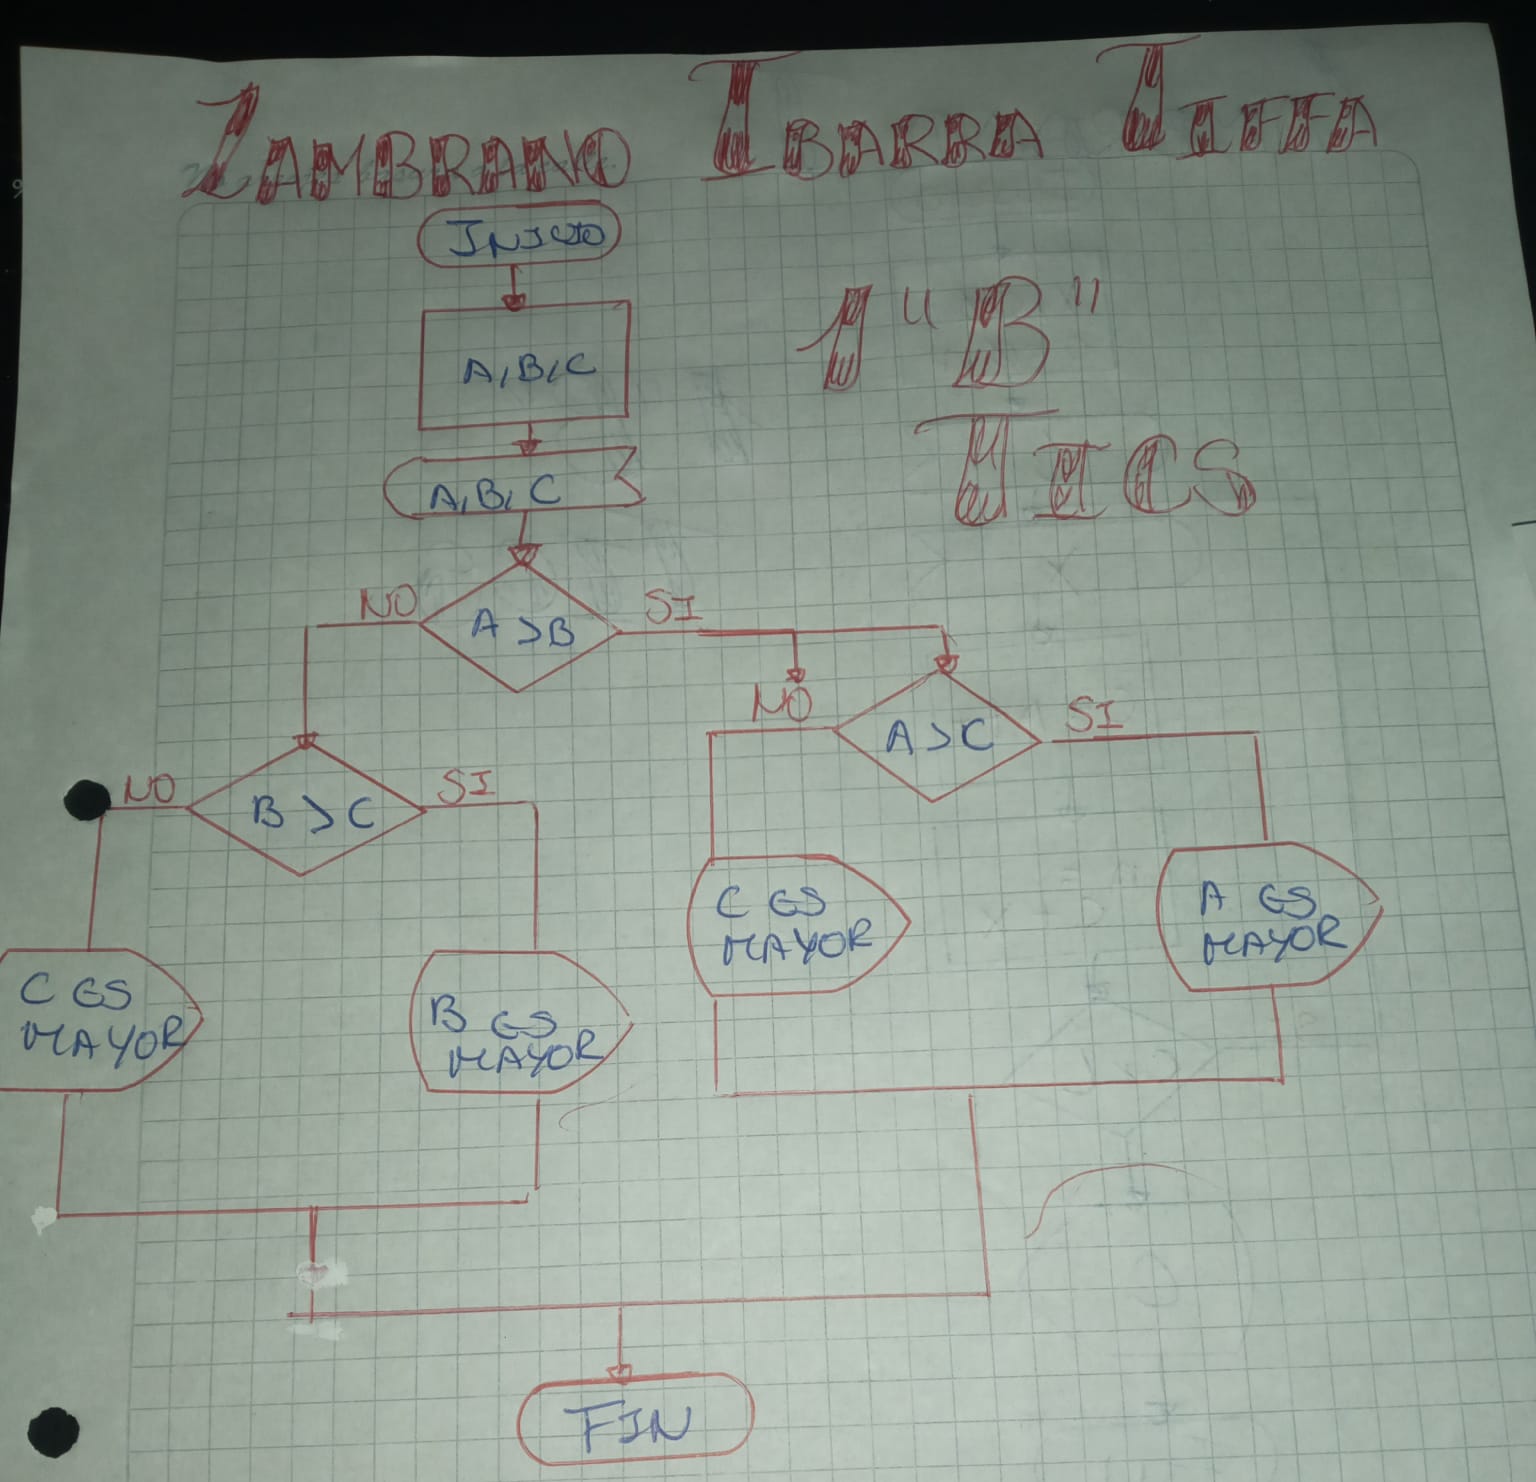 ZAMBRANO IBARRA TIFFA
INICIO
1 "B"
A, B, C
TICS
A, B, C
NO
A > B
SI
NO
A > C
SI
NO
B > C
SI
C ES
MAYOR
A ES
MAYOR
C ES
MAYOR
B ES
MAYOR
FIN